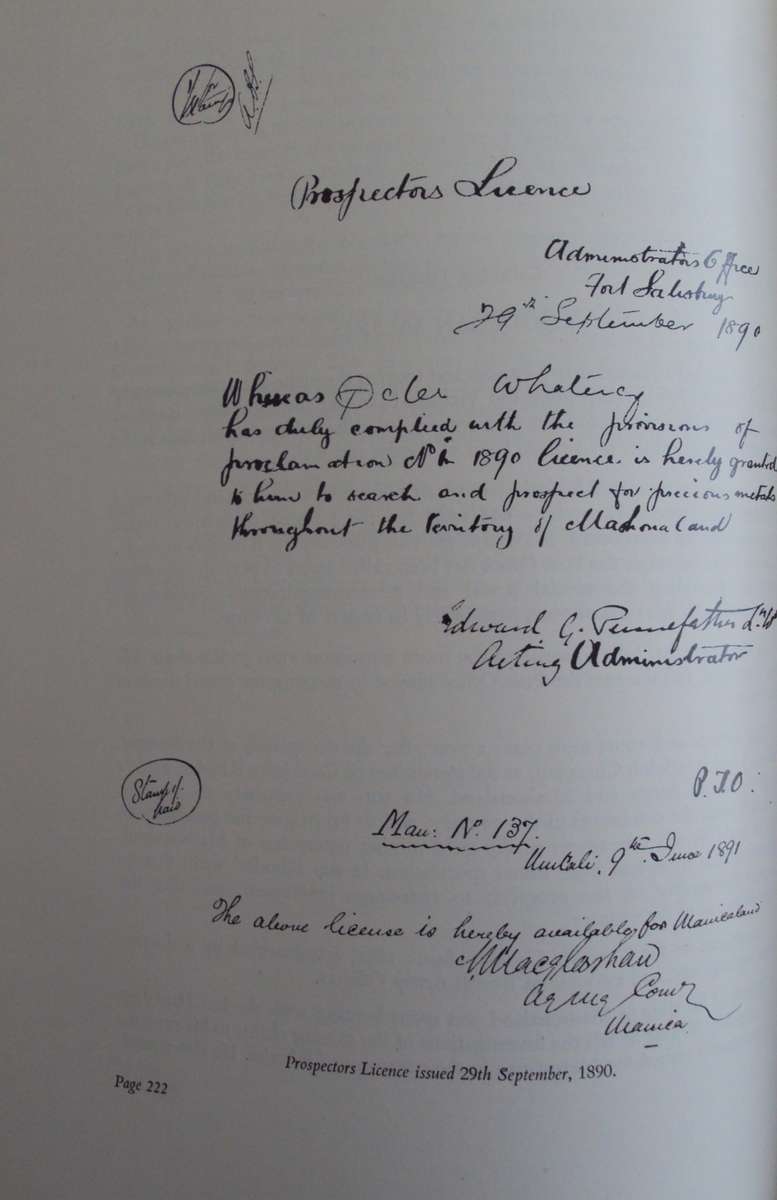 Prospectors Licence
Administrators Office
Fort Salisbury
29th September 1890
Whereas Peter Whateley
has duly complied with the provisions of
proclamation No 1 1890 licence is hereby granted
to him to search and prospect for precious metals
throughout the Territory of Mashonaland
Edward G. Pennefather
Acting Administrator
P.T.O.
Stamp
Man: No. 137.
Umtali, 9th June 1891
The above license is hereby available for Manicaland
Macglashan
Manica
Prospectors Licence issued 29th September, 1890.
Page 222